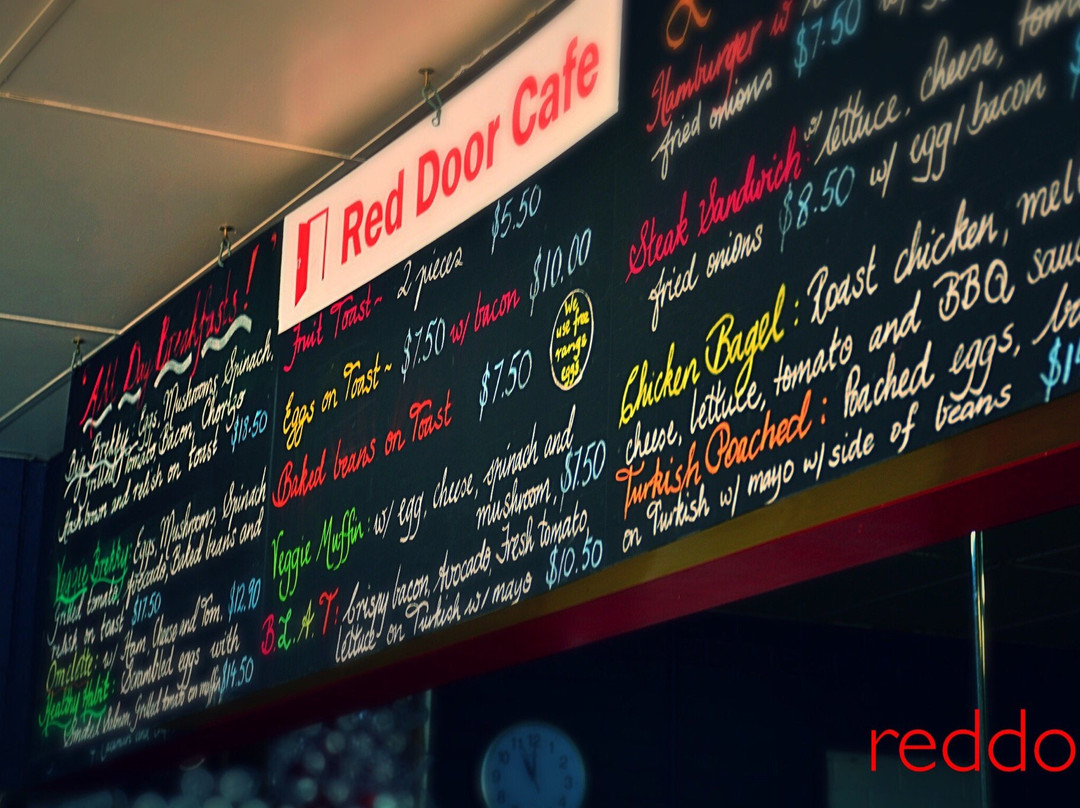 Red Door Cafe
"All Day Breakfasts!"
Big Brekky: Eggs, Mushrooms, Spinach,
Grilled tomato, Bacon, Chorizo
hash brown and relish on toast $18.50
Veggie Brekky: Eggs, Mushrooms, Spinach
Grilled tomato, Avocado, Baked beans and
relish on toast $17.50
Omelete: w/ Ham, Cheese and Tom. $12.90
Healthy Habit: Scrambled eggs with
Smoked Salmon, Grilled tomato on muffin $14.50
Fruit Toast ~ 2 pieces $5.50
Eggs on Toast ~ $7.50 w/ bacon $10.00
Baked beans on Toast $7.50
We
use free
range
eggs
Veggie Muffin: w/ egg, cheese, spinach and
mushroom, $7.50
B.L.A.T: Crispy bacon, Avocado, Fresh tomato,
lettuce on Turkish w/ mayo $10.50
Hamburger w/
fried onions $7.50
Steak Sandwich: w/ lettuce, cheese,
fried onions $8.50 w/ egg/bacon
Chicken Bagel: Roast chicken,
cheese, lettuce, tomato and BBQ
Turkish Poached: Poached eggs,
on Turkish w/ mayo w/ side of beans
reddo